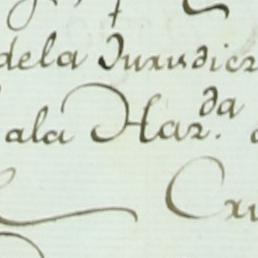 dela Jurisdicz
ala Haz.da
Cru